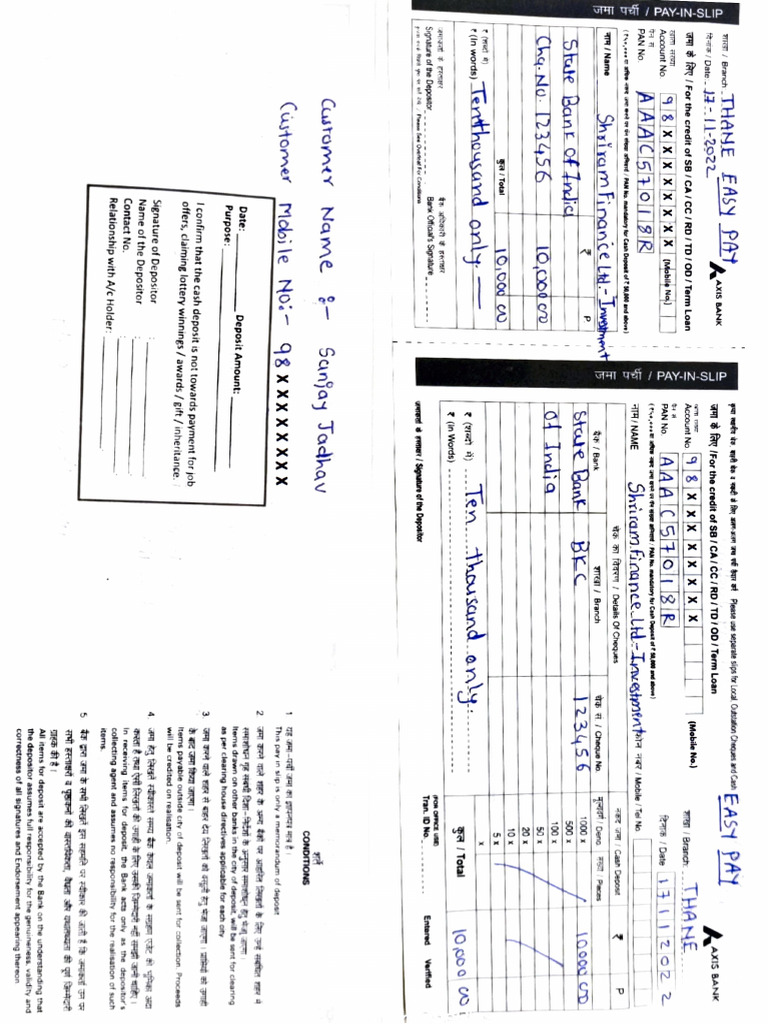 जमा पर्ची / PAY-IN-SLIP
शाखा / Branch THANE EASY PAY
दिनांक / Date 17-11-2022
AXIS BANK
जमा के लिए / For the credit of SB / CA / CC / RD / TD / OD / Term Loan
Account No. 98XXXXXXXX (Mobile No.)
PAN No. AAAC57018R
नाम / Name Shriram Finance Ltd - Investment
₹ P
State Bank of India
Chq. No. 123456 10,000 00
कुल / Total 10,000 00
₹ (शब्दों में)
₹ (In words) Ten thousand only.
Signature of the Depositor
Bank Official's Signature
जमा पर्ची / PAY-IN-SLIP
Please use separate slips for Local, Outstation Cheques and Cash
EASY PAY
शाखा / Branch: THANE
AXIS BANK
जमा के लिए / For the credit of SB / CA / CC / RD / TD / OD / Term Loan
दिनांक / Date 17112022
Account No 98XXXXXXXX (Mobile No.)
PAN No. AAAC57018R
नाम / NAME Shriram Finance Ltd - Investment फोन नंबर / Mobile / Tel No
चेक का विवरण / Details Of Cheques
नकद जमा / Cash Deposit ₹ P
बैंक / Bank शाखा / Branch चेक सं / Cheque No. Deno. Pieces
State Bank of India BKC 123456 1000 x 10000 00
500 x
100 x
50 x
20 x
10 x
5 x
x
₹ (शब्दों में)
₹ (In Words) Ten thousand only.
कुल / Total 10,000 00
(FOR OFFICE USE)
Tran. ID No. Entered Verified
जमाकर्ता के हस्ताक्षर / Signature of the Depositor
Customer Name :- Sanjay Jadhav
Customer Mobile No:- 98XXXXXXXX
Date: Deposit Amount:
Purpose:
I confirm that the cash deposit is not towards payment for job
offers, claiming lottery winnings / awards / gift / inheritance.
Signature of Depositor :
Name of the Depositor :
Contact No. :
Relationship with A/c Holder:
शर्तें
CONDITIONS
1 यह जमा-पर्ची जमा का ज्ञापन मात्र है।
This pay in slip is only a memorandum of deposit
2
Items drawn on other banks in the city of deposit, will be sent for clearing
as per clearing house directives applicable for each city
3
Items payable outside city of deposit will be sent for collection. Proceeds
will be credited on realisation.
4
In receiving items for deposit, the Bank acts only as the depositor's
collecting agent and assumes no responsibility for the realisation of such
items.
5
All items for deposit are accepted by the Bank on the understanding that
the depositor assumes full responsibility for the genuineness, validity and
correctness of all signatures and Endorsement appearing thereon